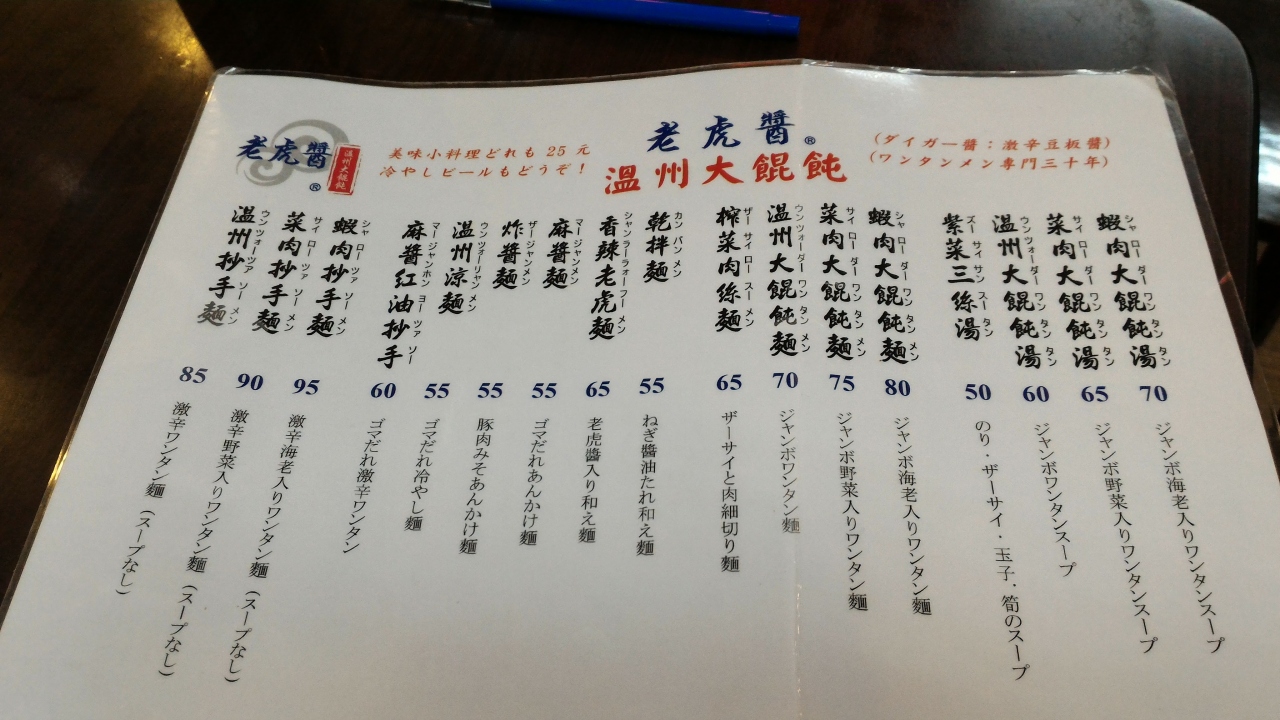 老虎醬®
溫州大餛飩®
(ダイガー醬：激辛豆板醬)
(ワンタンメン専門三十年)
美味小料理どれも 25 元
冷やしビールもどうぞ！
老虎醬®
溫州大餛飩
蝦肉大餛飩湯
シャ ロー ダー ワン タン タン
70
ジャンボ海老入りワンタンスープ
菜肉大餛飩湯
サイ ロー ダー ワン タン タン
65
ジャンボ野菜入りワンタンスープ
溫州大餛飩湯
ウンツォー ダー ワン タン タン
60
ジャンボワンタンスープ
紫菜三絲湯
ズー サイ サン スー タン
50
のり・ザーサイ・玉子・筍のスープ
蝦肉大餛飩麵
シャ ロー ダー ワン タン メン
80
ジャンボ海老入りワンタン麵
菜肉大餛飩麵
サイ ロー ダー ワン タン メン
75
ジャンボ野菜入りワンタン麵
溫州大餛飩麵
ウンツォー ダー ワン タン メン
70
ジャンボワンタン麵
榨菜肉絲麵
ザー サイ ロー スー メン
65
ザーサイと肉細切り麵
乾拌麵
カン バン メン
55
ねぎ醬油たれ和え麵
香辣老虎麵
シャンラーラォーフーメン
65
老虎醬入り和え麵
麻醬麵
マージャンメン
55
ゴマだれあんかけ麵
炸醬麵
ザージャンメン
55
豚肉みそあんかけ麵
溫州涼麵
ウンツォーリャンメン
55
ゴマだれ冷やし麵
麻醬紅油抄手
マージャンホン ヨー ツァ ソー
60
ゴマだれ激辛ワンタン
蝦肉抄手麵
シャ ロー ツァ ソー メン
95
激辛海老入りワンタン麵（スープなし）
菜肉抄手麵
サイ ロー ツァ ソー メン
90
激辛野菜入りワンタン麵（スープなし）
溫州抄手麵
ウンツォーツァ ソー メン
85
激辛ワンタン麵（スープなし）